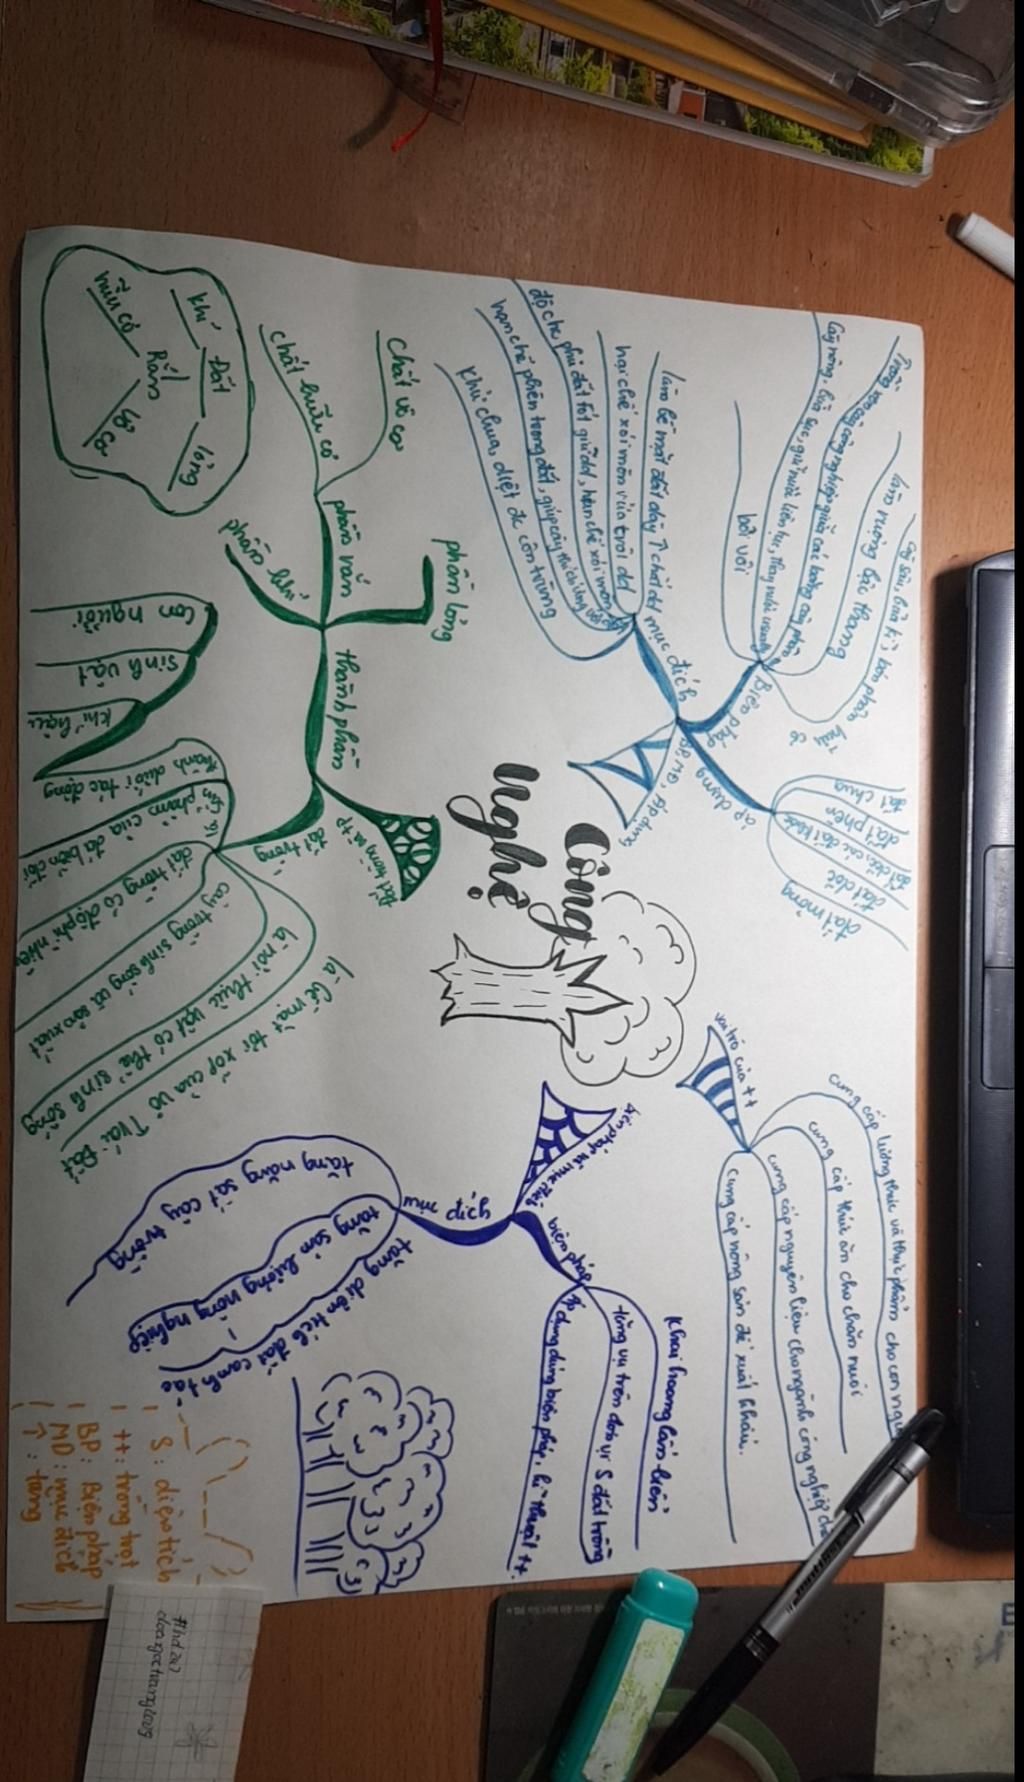 Công
Nghệ
vai trò của tt
cung cấp lương thực và thực phẩm cho con ngư
cung cấp thức ăn cho chăn nuôi
cung cấp nguyên liệu cho ngành công nghiệp
cung cấp nông sản để xuất khẩu.
biện pháp và mục đích
biện pháp
khai hoang lấn biển
tăng vụ trên đơn vị S đất trồng
sử dụng đúng biện pháp, kĩ thuật tt.
mục đích
tăng diện tích đất canh tác
tăng sản lượng nông nghiệp
tăng năng sất cây trồng
BP, MĐ, áp dụng
áp dụng
đất chua
đất phèn
đất dốc
đất mỏng
Biện pháp
Cày sâu, bừa kĩ, bón phân
hữu cơ
làm ruộng bậc thang
Trồng xen cây công nghiệp giữa các băng cây phân
Cày nông, bừa sục, giữ nước liên tục, thay nước
bởi với
mục đích
làm bề mặt đất dày ↑ chất dd
hạn chế xói mòn và trôi dd
độ che phủ đất tốt giữ dd, hạn chế xói mòn
hạn chế phèn trong đất, giúp cây
khử chua, diệt đc côn trùng
đất trồng và tp
thành phần
phần lỏng
phần khí
phần rắn
chất vô cơ
chất hữu cơ
khí
Đất
lỏng
Rắn
hữu cơ
vô cơ
đất trồng
là bề mặt tơi xốp của vỏ Trái Đất
là nơi thực vật có thể sinh sống
cây trồng sinh sống và sản xuất
đất trồng có độ phì nhiêu
sản phẩm của đá biến đổi
thành dưới tác động
khí hậu
sinh vật
con người
S: diện tích
tt: trồng trọt
BP: Biện pháp
MĐ: mục đích
↑: tăng
#hd247